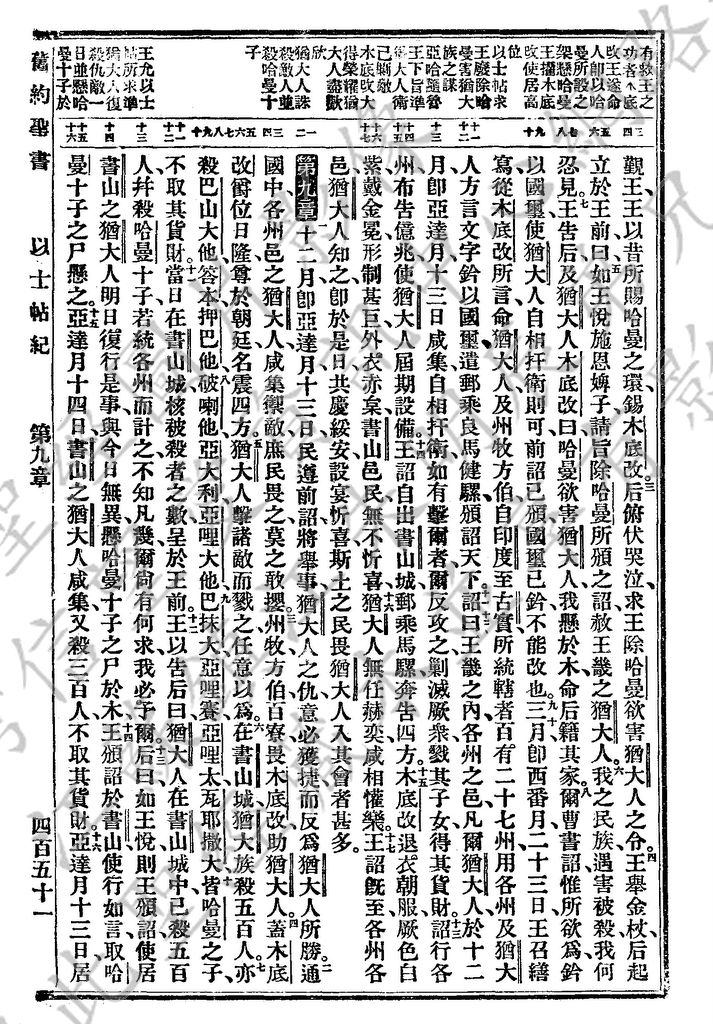 有救王之
功者木底
改王遂命
人即以哈
曼所設之
架懸哈曼
王擢木底
改使居高
位
以士帖求
王廢除哈
曼害猶大
族之謀
亞哈隨魯
王下旨準
猶大人衛
己驅敵
木底改大
得榮耀猶
大人盡歡
欣
猶大人誅
殺敵人並
殺哈曼十
子
王允以士
帖所求準
猶大人復
殺仇敵一
日並懸哈
曼十子於
覲王王以昔所賜哈曼之環錫木底改后俯伏哭泣求王除哈曼欲害猶大人之令王舉金杖后起
立於王前曰如王悅施恩婢子請旨除哈曼所頒之詔赦王畿之猶大人我之民族遇害被殺我何
忍見王告后及猶大人木底改曰哈曼欲害猶大人我懸於木命后籍其家爾曹書詔惟所欲爲鈐
以國璽使猶大人自相扞衛則可前詔已頒國璽已鈐不能改也三月即西番月二十三日王召繕
寫從木底改所言命猶大人及州牧方伯自印度至古實所統轄者百有二十七州用各州及猶大
人方言文字鈐以國璽遣郵乘良馬健騾頒詔天下詔曰王畿之內各州之邑凡爾猶大人於十二
月即亞達月十三日咸集自相扞衛如有擊爾者爾反攻之剿滅厥衆戮其子女得其貨財詔行各
州布告億兆使猶大人屆期設備王詔自出書山城郵乘馬騾奔告四方木底改退衣朝服厥色白
紫戴金冕形制甚巨外衣亦枲書山邑民無不忻喜猶大人無任赫奕咸相懽樂王詔旣至各州各
邑猶大人知之即於是日共慶綏安設宴忻喜斯土之民畏猶大人入其會者甚多
第九章十二月即亞達月十三日民遵前詔將舉事猶大人之仇意必獲捷而反爲猶大人所勝通
國中各州邑之猶大人咸集禦敵庶民畏之莫之敢攖州牧方伯百寮畏木底改助猶大人蓋木底
改爵位日隆尊於朝廷名震四方猶大人擊諸敵而戮之任意以爲在書山城猶大族殺五百人亦
殺巴山大他答本押巴他破喇他亞大利亞哩大他巴抹大亞哩賽亞哩太瓦耶撒大皆哈曼之子
不取其貨財當日在書山城核被殺者之數呈於王前王以告后曰猶大人在書山城中已殺五百
人幷殺哈曼十子若統各州而計之不知凡幾爾尙有何求我必予爾后曰如王悅則王頒詔使居
書山之猶大人明日復行是事與今日無異懸哈曼十子之尸於木王頒詔於書山使行如言取哈
曼十子之尸懸之亞達月十四日書山之猶大人咸集又殺三百人不取其貨財亞達月十三日居
舊約聖書　以士帖紀　第九章　四百五十一